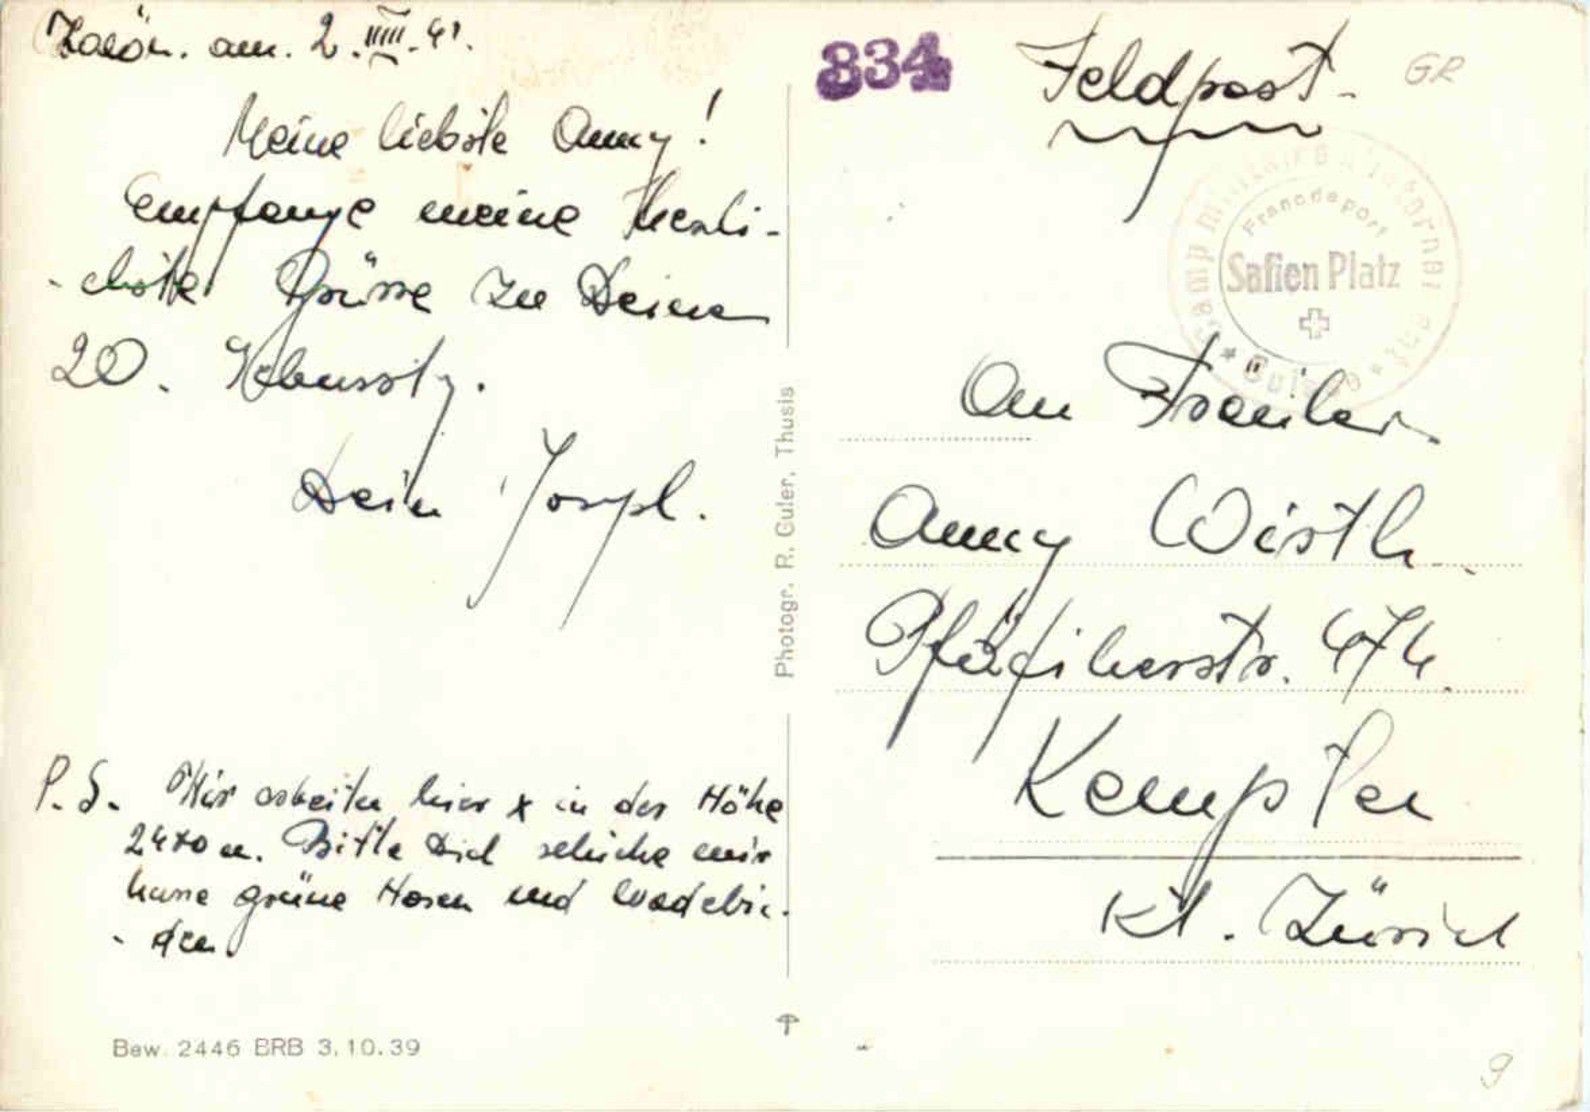 am. 2. IIIII. 41.
Meine liebste Anny!
Empfange meine Herzli-
-chste Grüsse zu Deinen
20.
Dein
P.S. Wir arbeiten hier x in der Höhe
24 m. Bitte Dich schicke mir
kurze grüne Hosen und Wadebin-
-den
Bew. 2446 BRB 3.10.39
Photogr. R. Guler, Thusis
834
Feldpost-
GR
Camp militaire d'internement
Franc de port
Safien Platz
Suisse
An Fräulein
Anny Wirth
Pfäffikerstr. 474
Kempten
Kt. Zürich
9